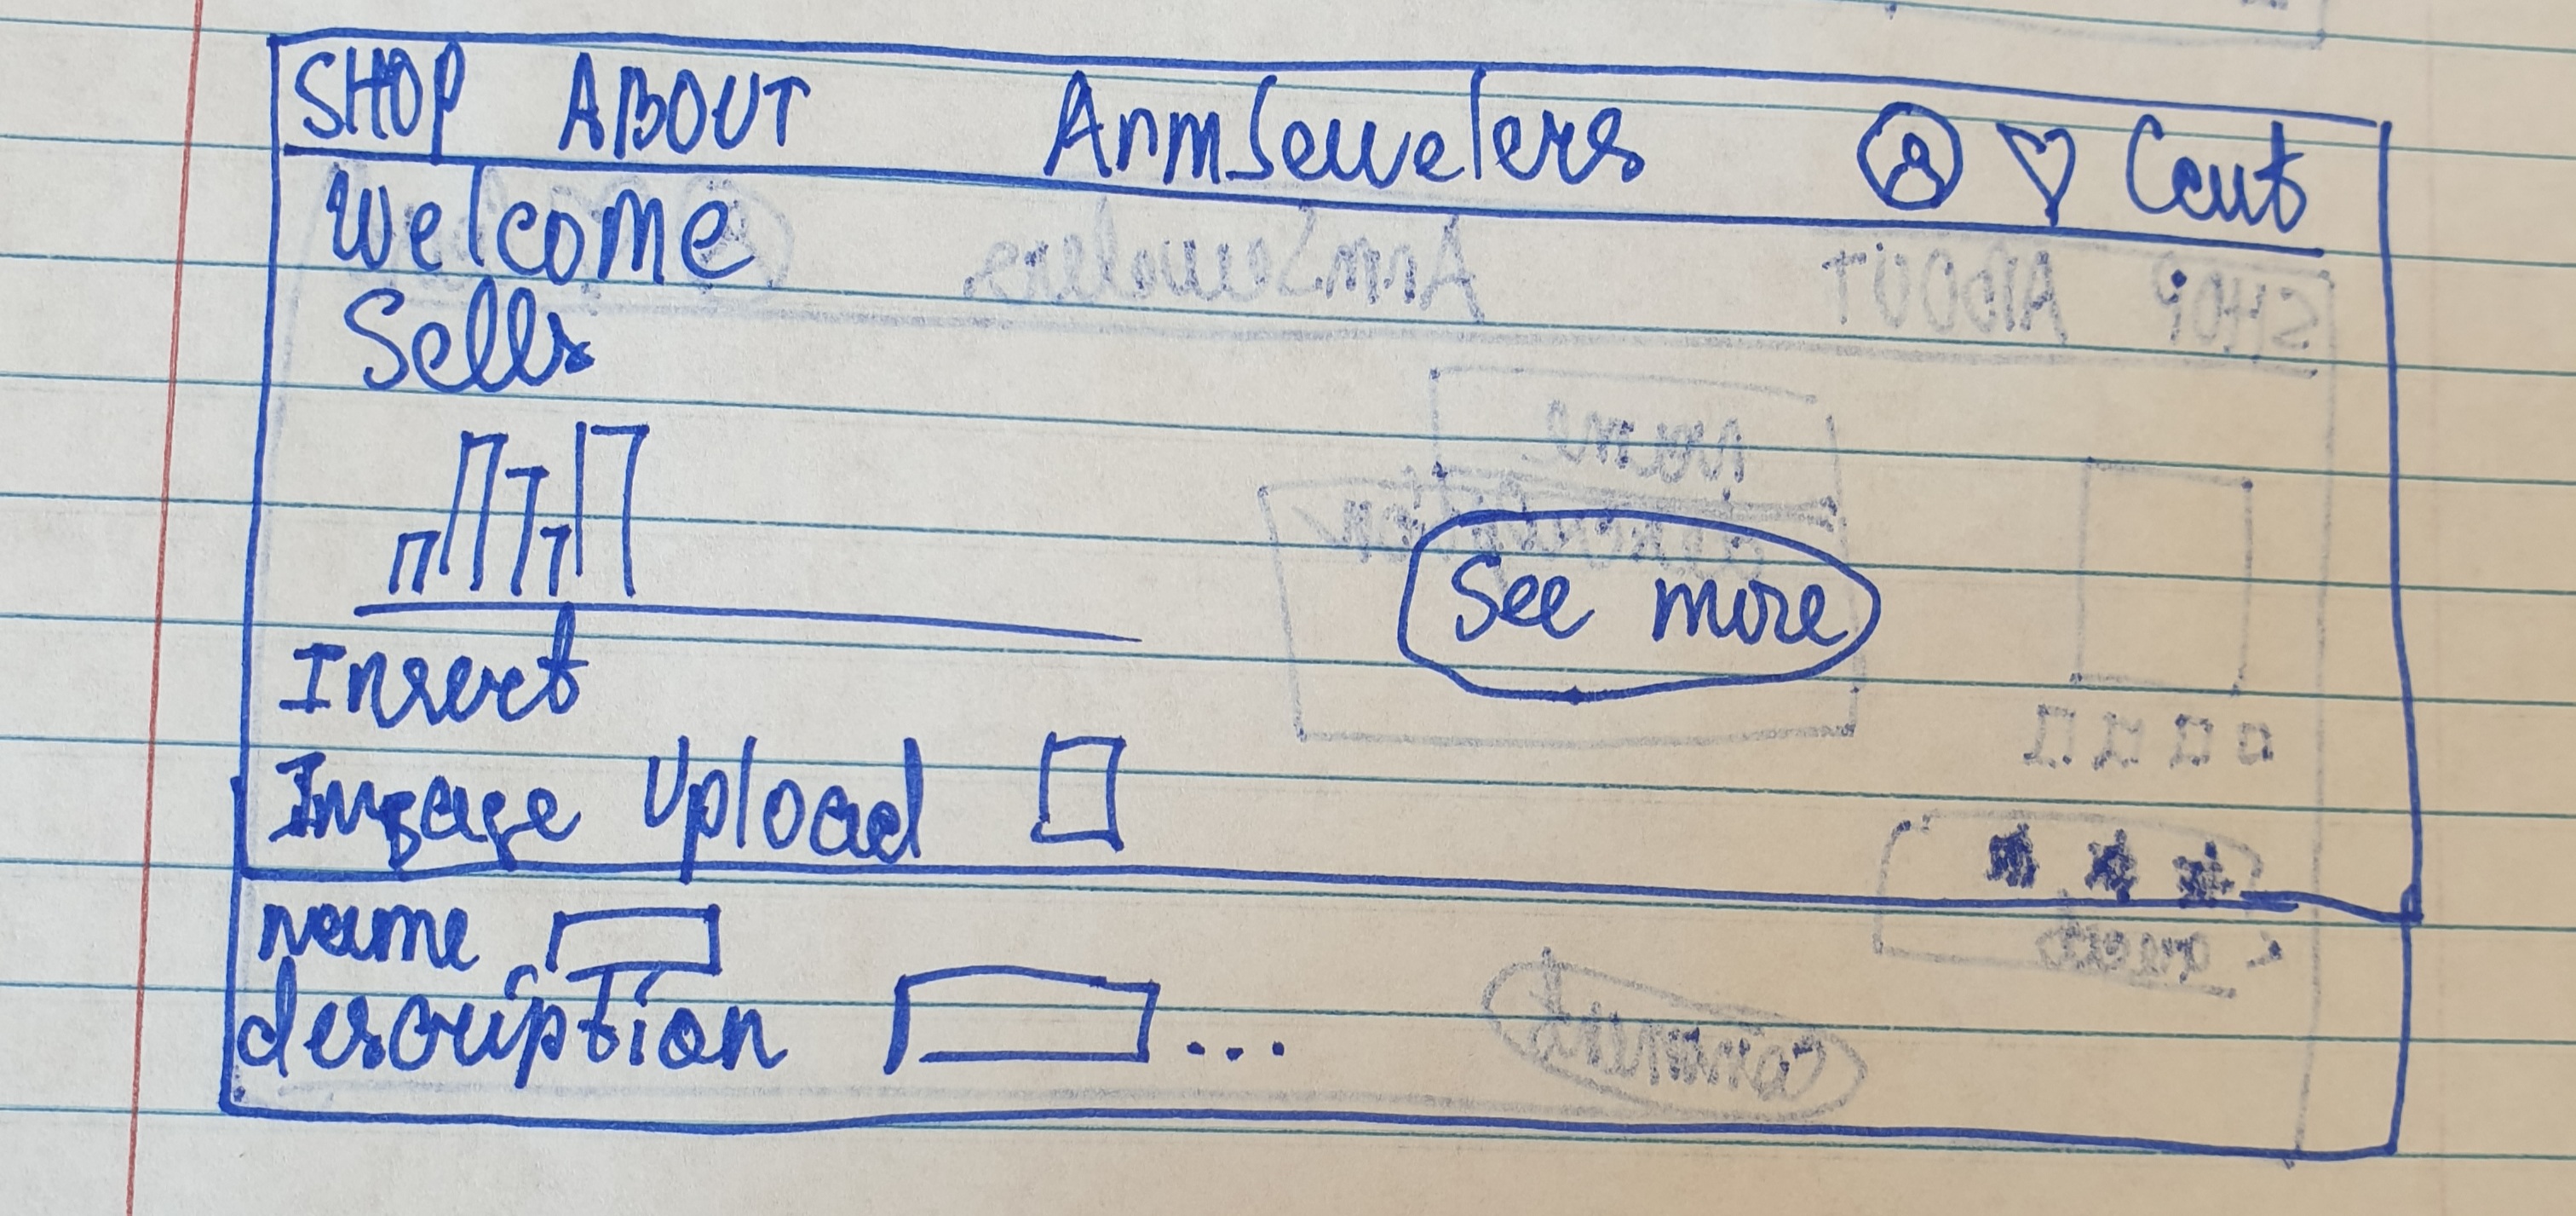 SHOP ABOUT ArmJewelers Cart
Welcome
Sells
See more
Insert
Image Upload
name
description ...